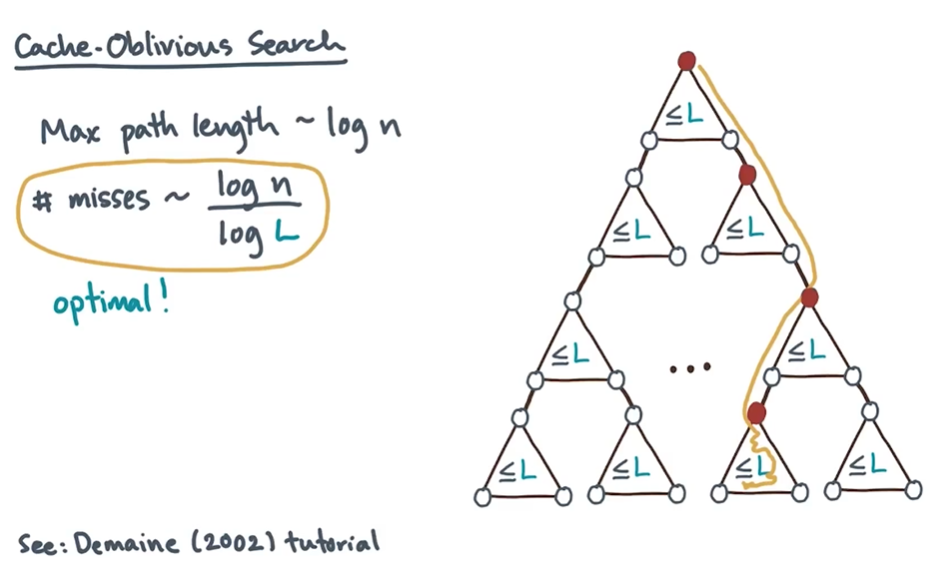 Cache-Oblivious Search
Max path length ~ log n
# misses ~ log n / log L
optimal!
≤L
≤L
≤L
≤L
...
≤L
≤L
≤L
≤L
≤L
See: Demaine (2002) tutorial